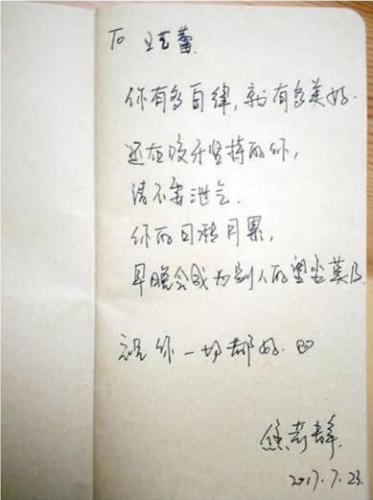 To 王艺蕾
你有多自律,就有多美好.
还在咬牙坚持的你,
请不要泄气.
你的日积月累,
早晚会成为别人的望尘莫及
祝你一切都好.
2017.7.23